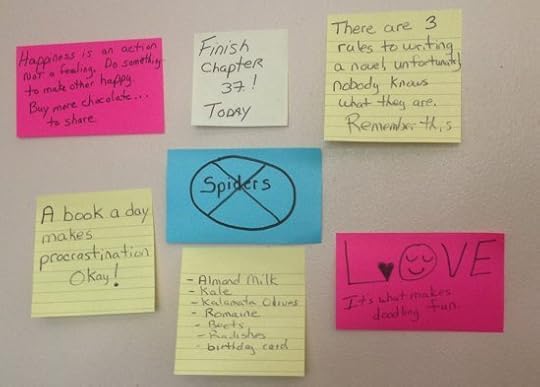 Happiness is an action
Not a feeling. Do something
to make other happy.
Buy more chocolate...
to share.
Finish
Chapter
37!
Today
There are 3
rules to writing
a novel, unfortunately
nobody knows
what they are.
Remember this
Spiders
A book a day
makes
procrastination
Okay!
- Almond Milk
- Kale
- Kalamata Olives
- Romaine
- Beets
- Radishes
- birthday card
LOVE
It's what makes
doodling fun.